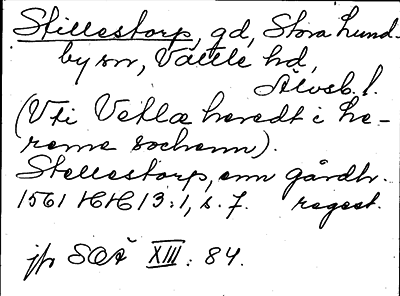 Stillestorp, gd, Stora Lund-
by sn, Vättle hd,
Älvsb. l.
(Vti Vetlæ heredt i he-
rems sochenn).
Stellestorp, enn gårdh.
1561 HH 13:1, s. 7. regest.
jfr SOÄ XIII: 84.